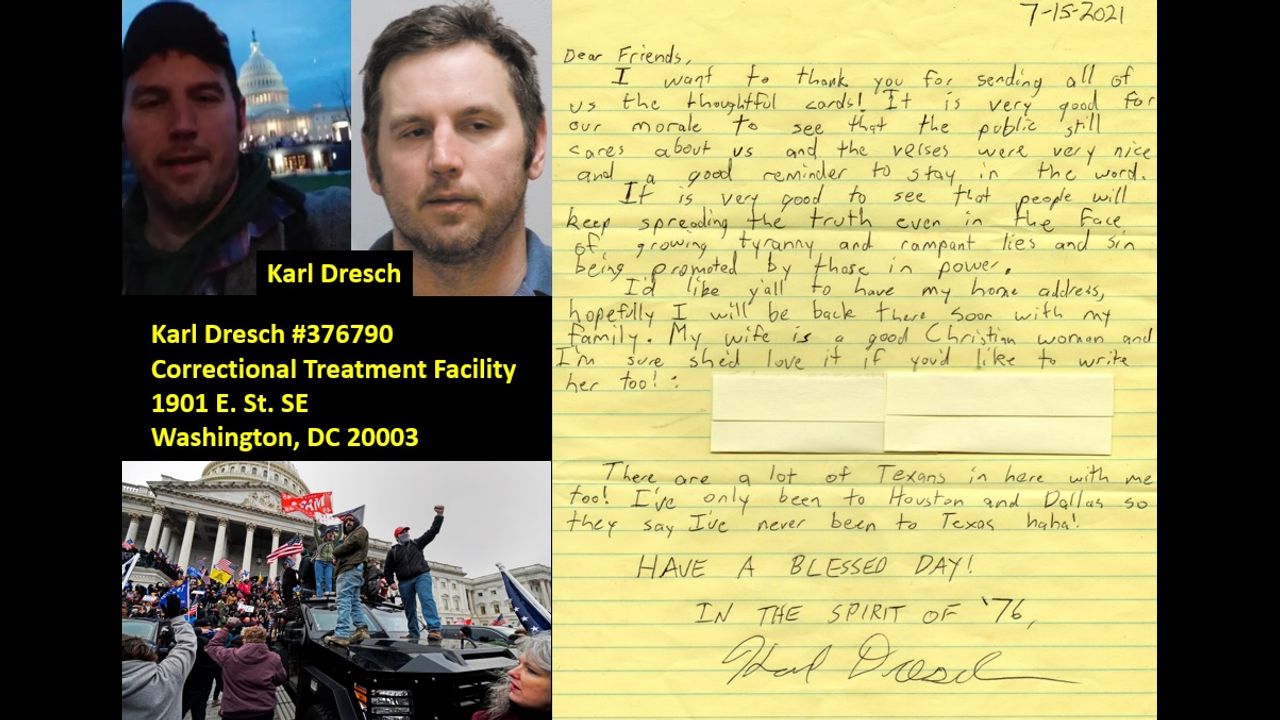 Karl Dresch
Karl Dresch #376790
Correctional Treatment Facility
1901 E. St. SE
Washington, DC 20003
7-15-2021
Dear Friends,
I want to thank you for sending all of
us the thoughtful cards! It is very good for
our morale to see that the public still
cares about us and the verses were very nice
and a good reminder to stay in the word.
It is very good to see that people will
keep spreading the truth even in the face
of growing tyranny and rampant lies and sin
being promoted by those in power.
I'd like y'all to have my home address,
hopefully I will be back there soon with my
family. My wife is a good Christian woman and
I'm sure she'd love it if you'd like to write
her too! :
There are a lot of Texans in here with me
too! I've only been to Houston and Dallas so
they say I've never been to Texas haha!
HAVE A BLESSED DAY!
IN THE SPIRIT OF '76,
Karl Dresch